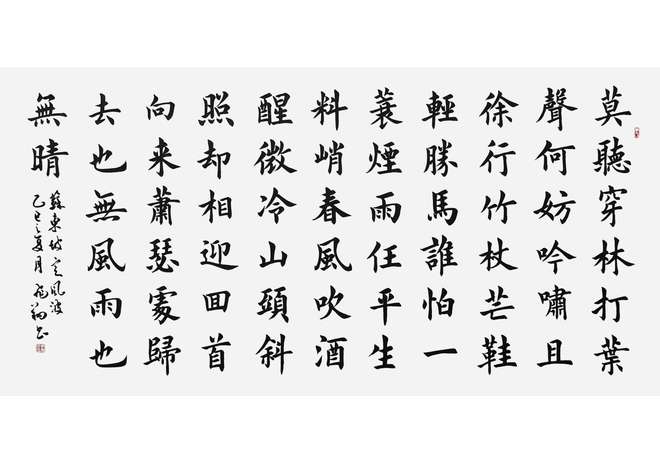 莫聽穿林打葉
聲何妨吟嘯且
徐行竹杖芒鞋
輕勝馬誰怕一
蓑煙雨任平生
料峭春風吹酒
醒微冷山頭斜
照却相迎回首
向来蕭瑟處歸
去也無風雨也
無晴
蘇東坡定風波
乙巳之夏月